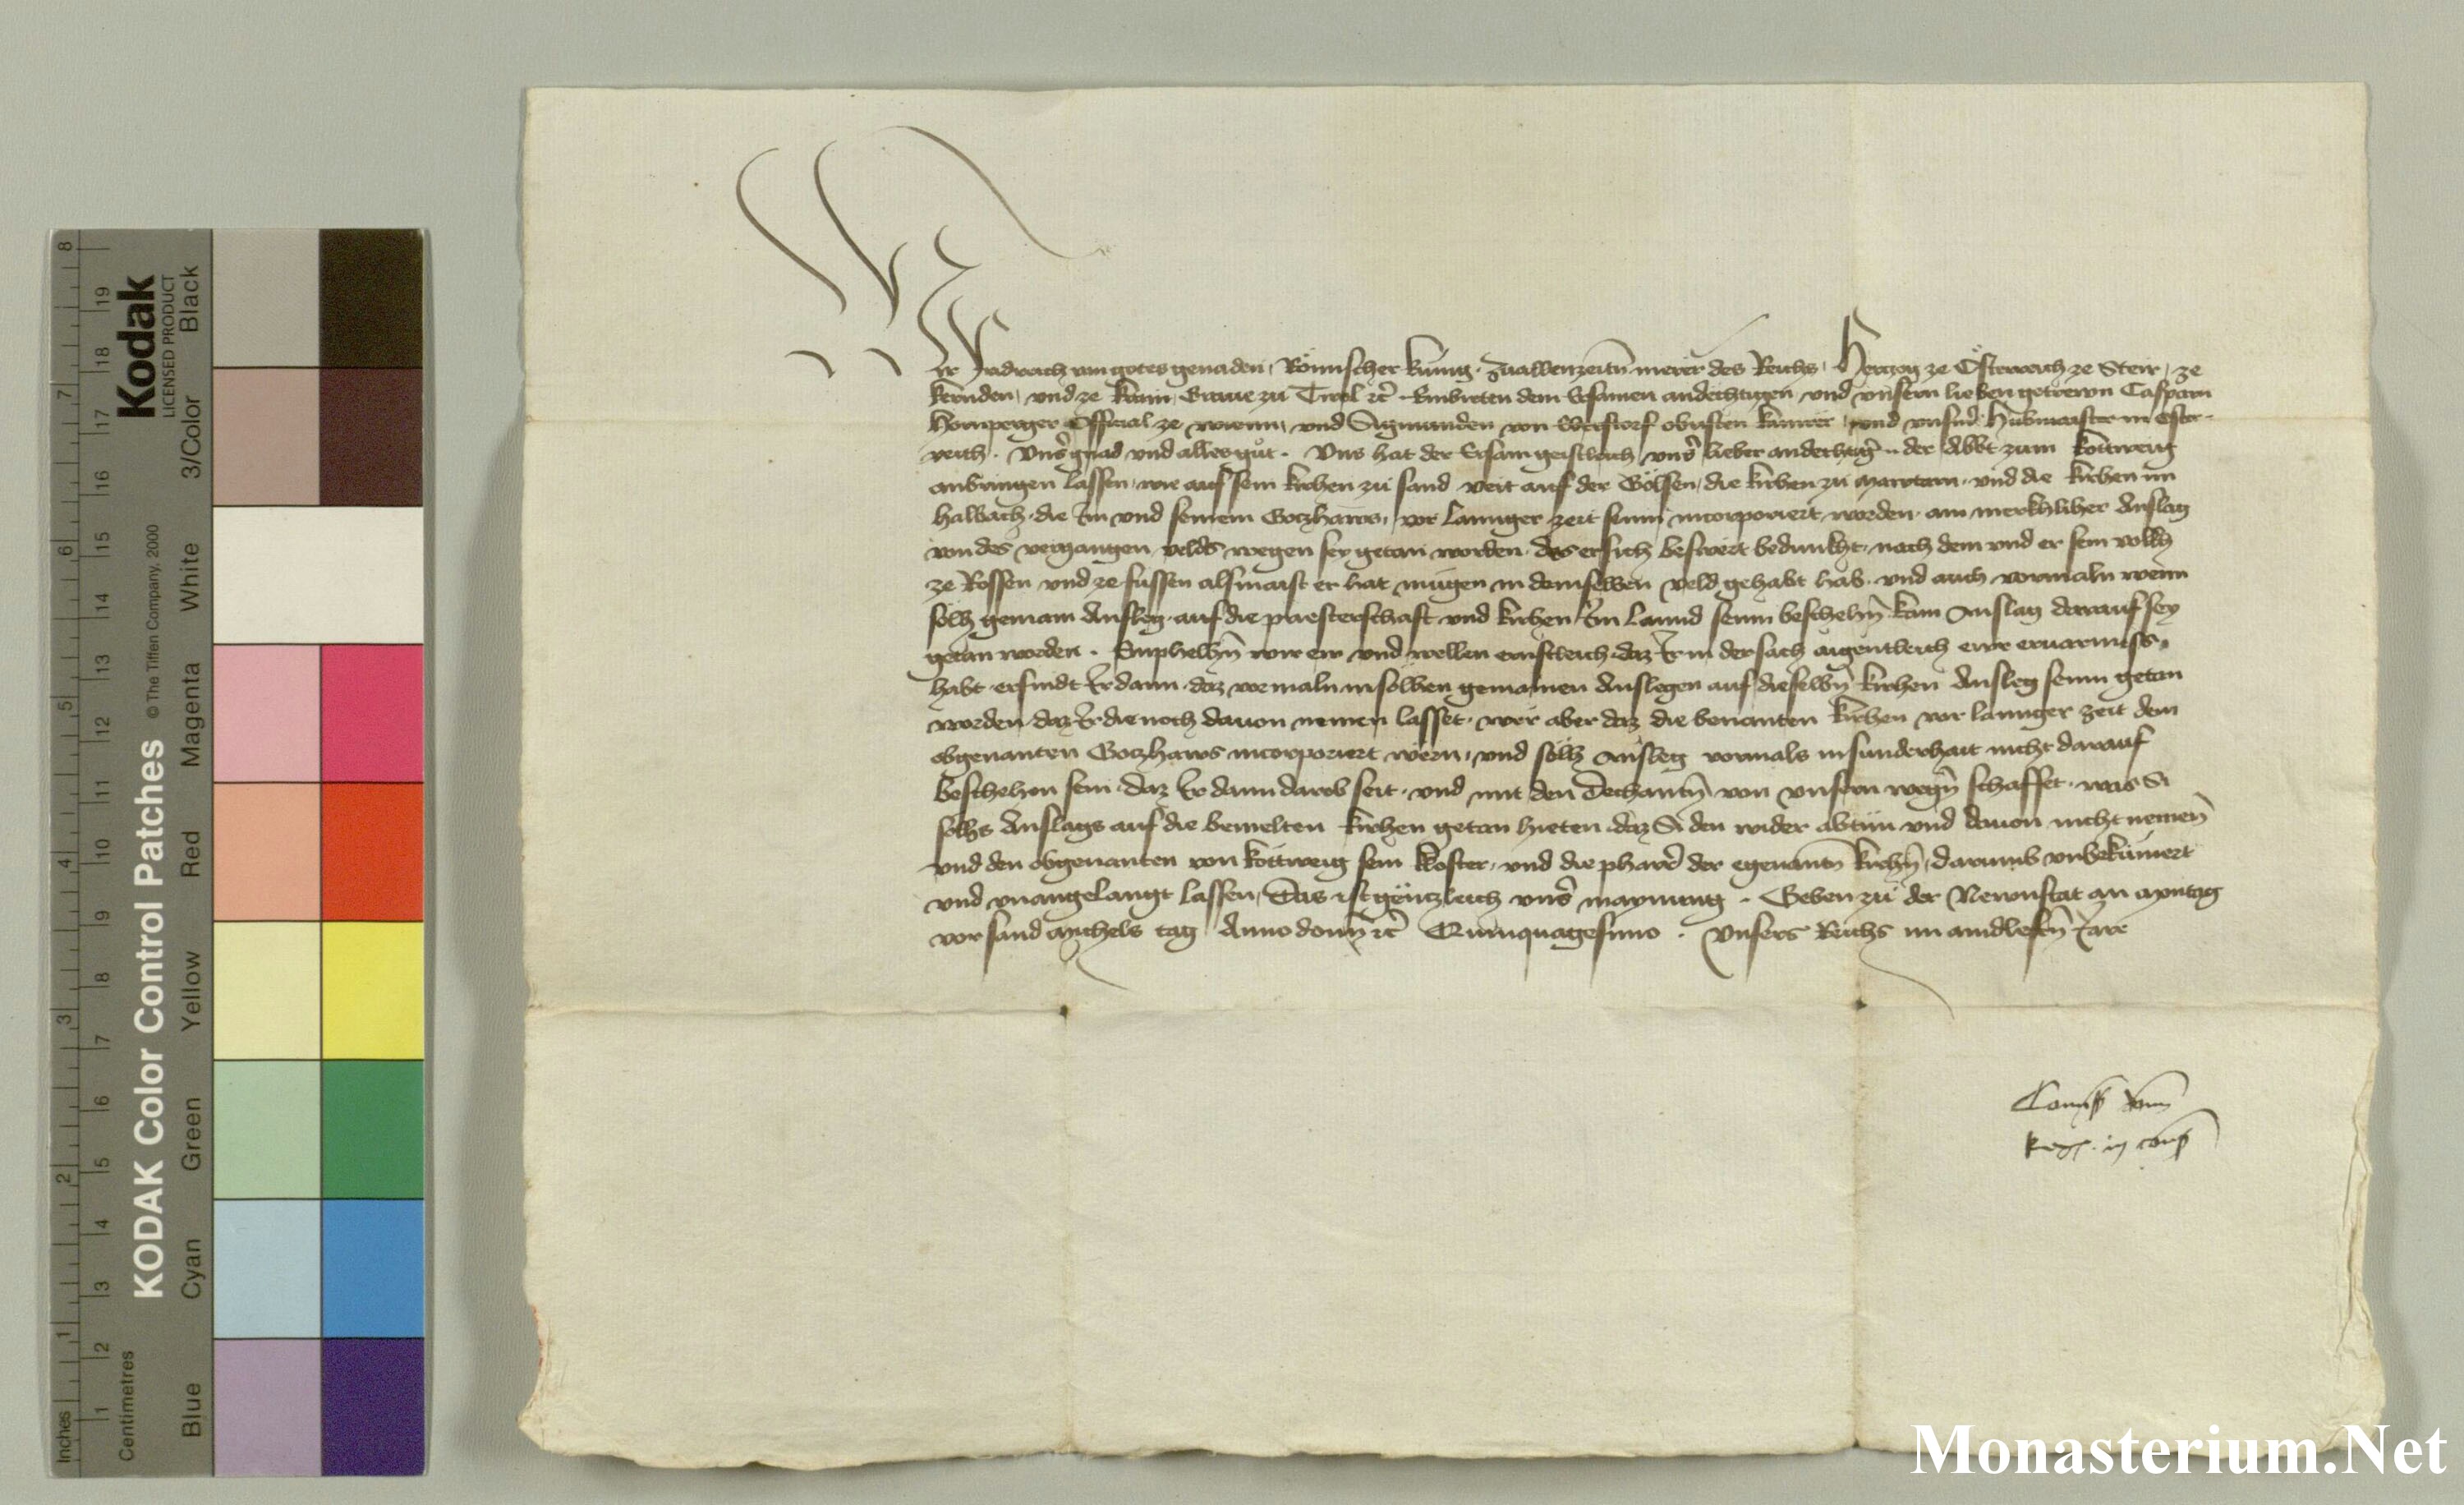 Wir Fridreich von gotes genaden, Römischer kunig, zuallenzeitn merer des Reichs, Herczog ze Österreich ze Steir, ze
kernden, und ze krain, Graue zu Tirol etc Embieten dem Ersamen andechtigen und unsern lieben getrewn Casparn
Hornperger Official ze wienn, und Sigmunden von Eberstorf obristen kamrer, und unserm Hubmaister in Öster-
reich. Unser gnad und alles gut. Uns hat der Ersam geistleich unser lieber andechtiger der Abbt zum köttweig
anbringen lassen, wie auf sein kirchen zu sand veit auf der Gölsen, die kirchen zu und die kirchen im
halbach, die Im und seinem Goczhaws, vor lannger zeit sein incorporiert worden, ain merkhlicher Anslag
von des vergangen velds wegen sey getan worden, des er sich beswert bedunkht, nach dem und er sein volkh
ze Rossen und ze fussen alsmaist er hat mügen in demselben veld gehabt hab, und auch vormaln wenn
sölh gemain Ansleg auf die priesterschaft und kirchen Im Lannd seinn beschehn kain Anslag darauf sey
getan worden. Emphelhn wir ew und wellen ernstleich, daz Ir in der sach aigentleich ewr eruarnuss
habt, erfindt Ir dann, daz vormaln in solhen gemainen Anslegen auf dieselbn kirchen Ansleg seinn getan
worden, daz Ir die noch dauon nemen lasset, wer aber daz die benanten kirchen vor lannger zeit dem
obgenanten Goczhaws incorporiert wern, und sölh Ansleg vormals insunderhait nicht darauf
beschehen sein, daz Ir dann darob seit, und mit den Dechantn von unsern wegn schaffet, was Si
solhs Anslags auf die bemelten kirchen getan hieten, daz Si den wider abtun und dauon nicht nemen
und den obgenanten von köttweig sein kloster, und die pharr der egenantn kirchn, darumb unbekümert
und unangelangt lassen, Das ist gentzleich unser maynung. Geben zu der Newnstat an Montag
vor sand Michels tag Anno domini etc Quinquagesimo. Unsers Reichs im aindleftn Jare
Kodak
LICENSED PRODUCT
KODAK Color Control Patches
© The Tiffen Company, 2000
Black
3/Color
White
Magenta
Red
Yellow
Green
Cyan
Blue
Inches
1 2 3 4 5 6 7 8
Centimetres
1 2 3 4 5 6 7 8 9 10 11 12 13 14 15 16 17 18 19
Monasterium.Net